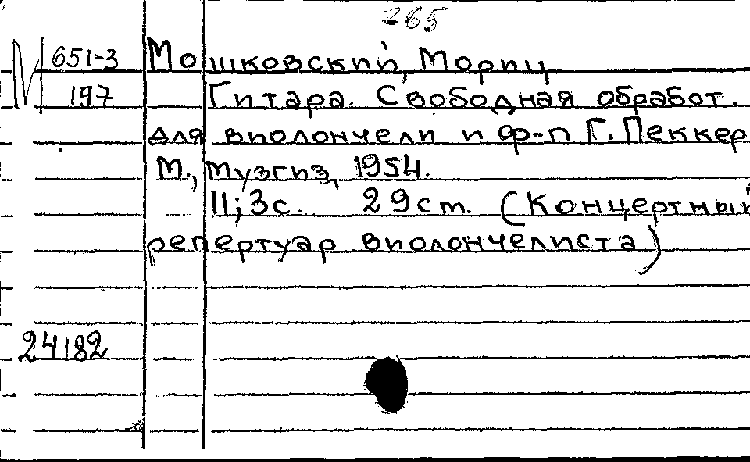 265
М 651-3 Мошковский, Мориц
197 Гитара. Свободная обработ.
для виолончели и ф-п Г. Пеккер
М., Музгиз, 1954.
11; 3с. 29ст. (Концертный
репертуар виолончелиста)
24182